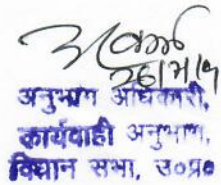 अनुभाग अधिकारी,
कार्यवाही अनुभाग,
विधान सभा, उ०प्र०